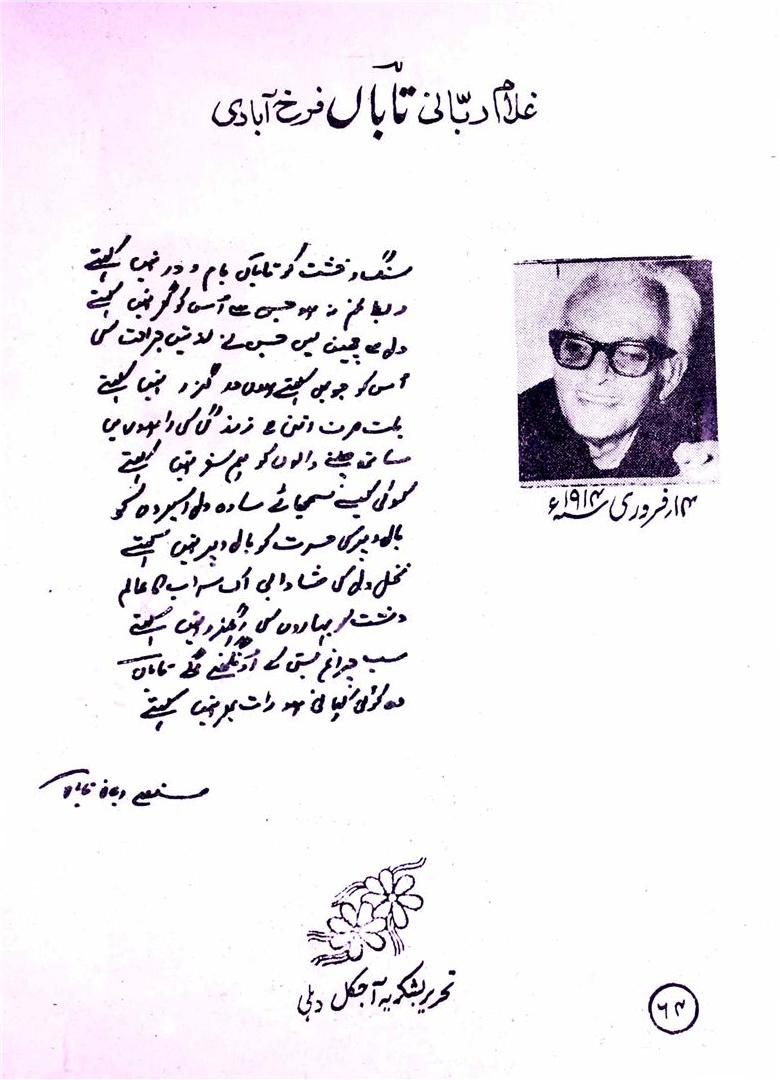 غلام ربّانی تاباّں فرخ آبادی
سنگ و خشت کو تاباں بام و در نہیں کہتے
ربط غم نہ ہو جس سے اُس کو گھر نہیں کہتے
دل سے چھین لیں جس نے لذتیں جراحت کی
اُس کو جو بھی کہتے ہوں گزر نہیں کہتے
بات صرف اتنی ہے زندگی کی راہوں میں
ساتھ چلنے والوں کو ہم سفر نہیں کہتے
کوئی کیسے سمجھائے سادہ دل اسیروں کو
بال و پر کی حسرت کو بال و پر نہیں کہتے
نخل دل کی شادابی اک سراب کا عالم
دشت کو بہاروں کی رہگزر نہیں کہتے
سب چراغ بستی کے اونگھنے لگے تاباں
وہ کوئی کہانی ہو رات بھر نہیں کہتے
ربانی تاباں
۱۴؍فروری ۱۹۱۴ء
تحریر بشکریہ آجکل دہلی
۶۴